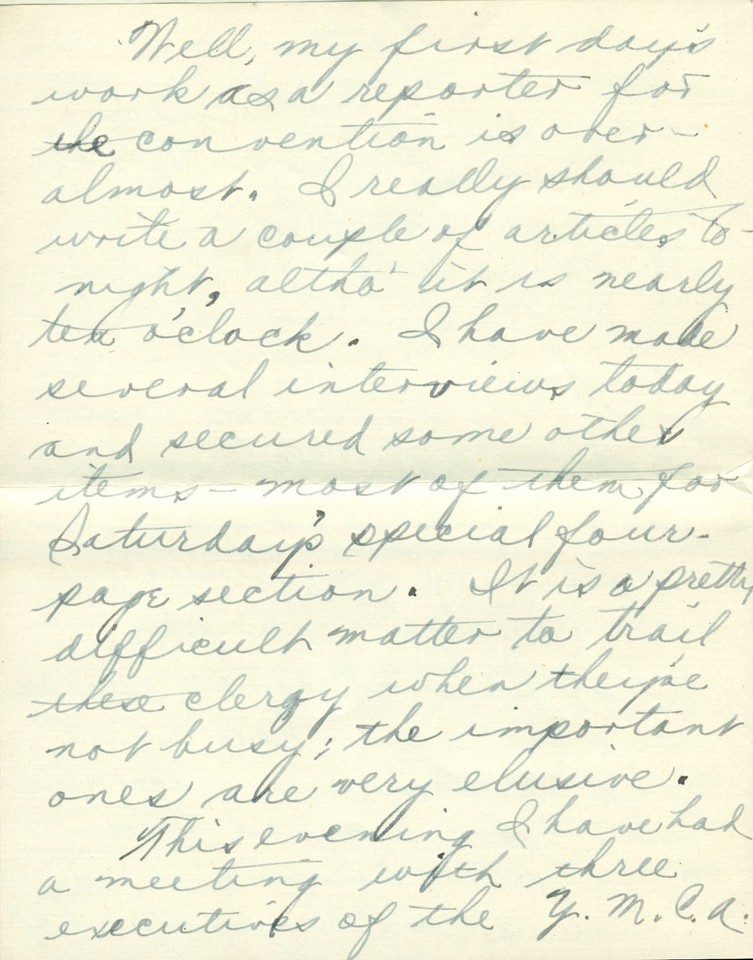 Well, my first day's
work as a reporter for
the convention is over -
almost. I really should
write a couple of articles to-
night, altho' it is nearly
ten o'clock. I have made
several interviews today
and secured some other
items - most of them for
Saturday's special four-
page section. It is a pretty
difficult matter to trail
these clergy when they're
not busy; the important
ones are very elusive.
This evening I have had
a meeting with three
executives of the Y.M.C.A.